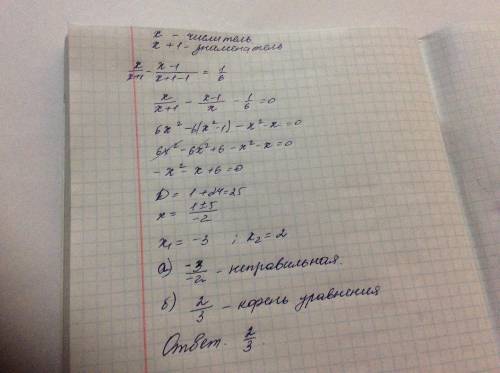 x - числитель
x + 1 - знаменатель
x/(x+1) - (x-1)/(x+1-1) = 1/6
x/(x+1) - (x-1)/x - 1/6 = 0
6x² - 6(x²-1) - x² - x = 0
6x² - 6x² + 6 - x² - x = 0
-x² - x + 6 = 0
D = 1 + 24 = 25
x = (1±5)/-2
x₁ = -3 ; x₂ = 2
а) -3/-2 - неправильная.
б) 2/3 - корень уравнения
Ответ. 2/3.